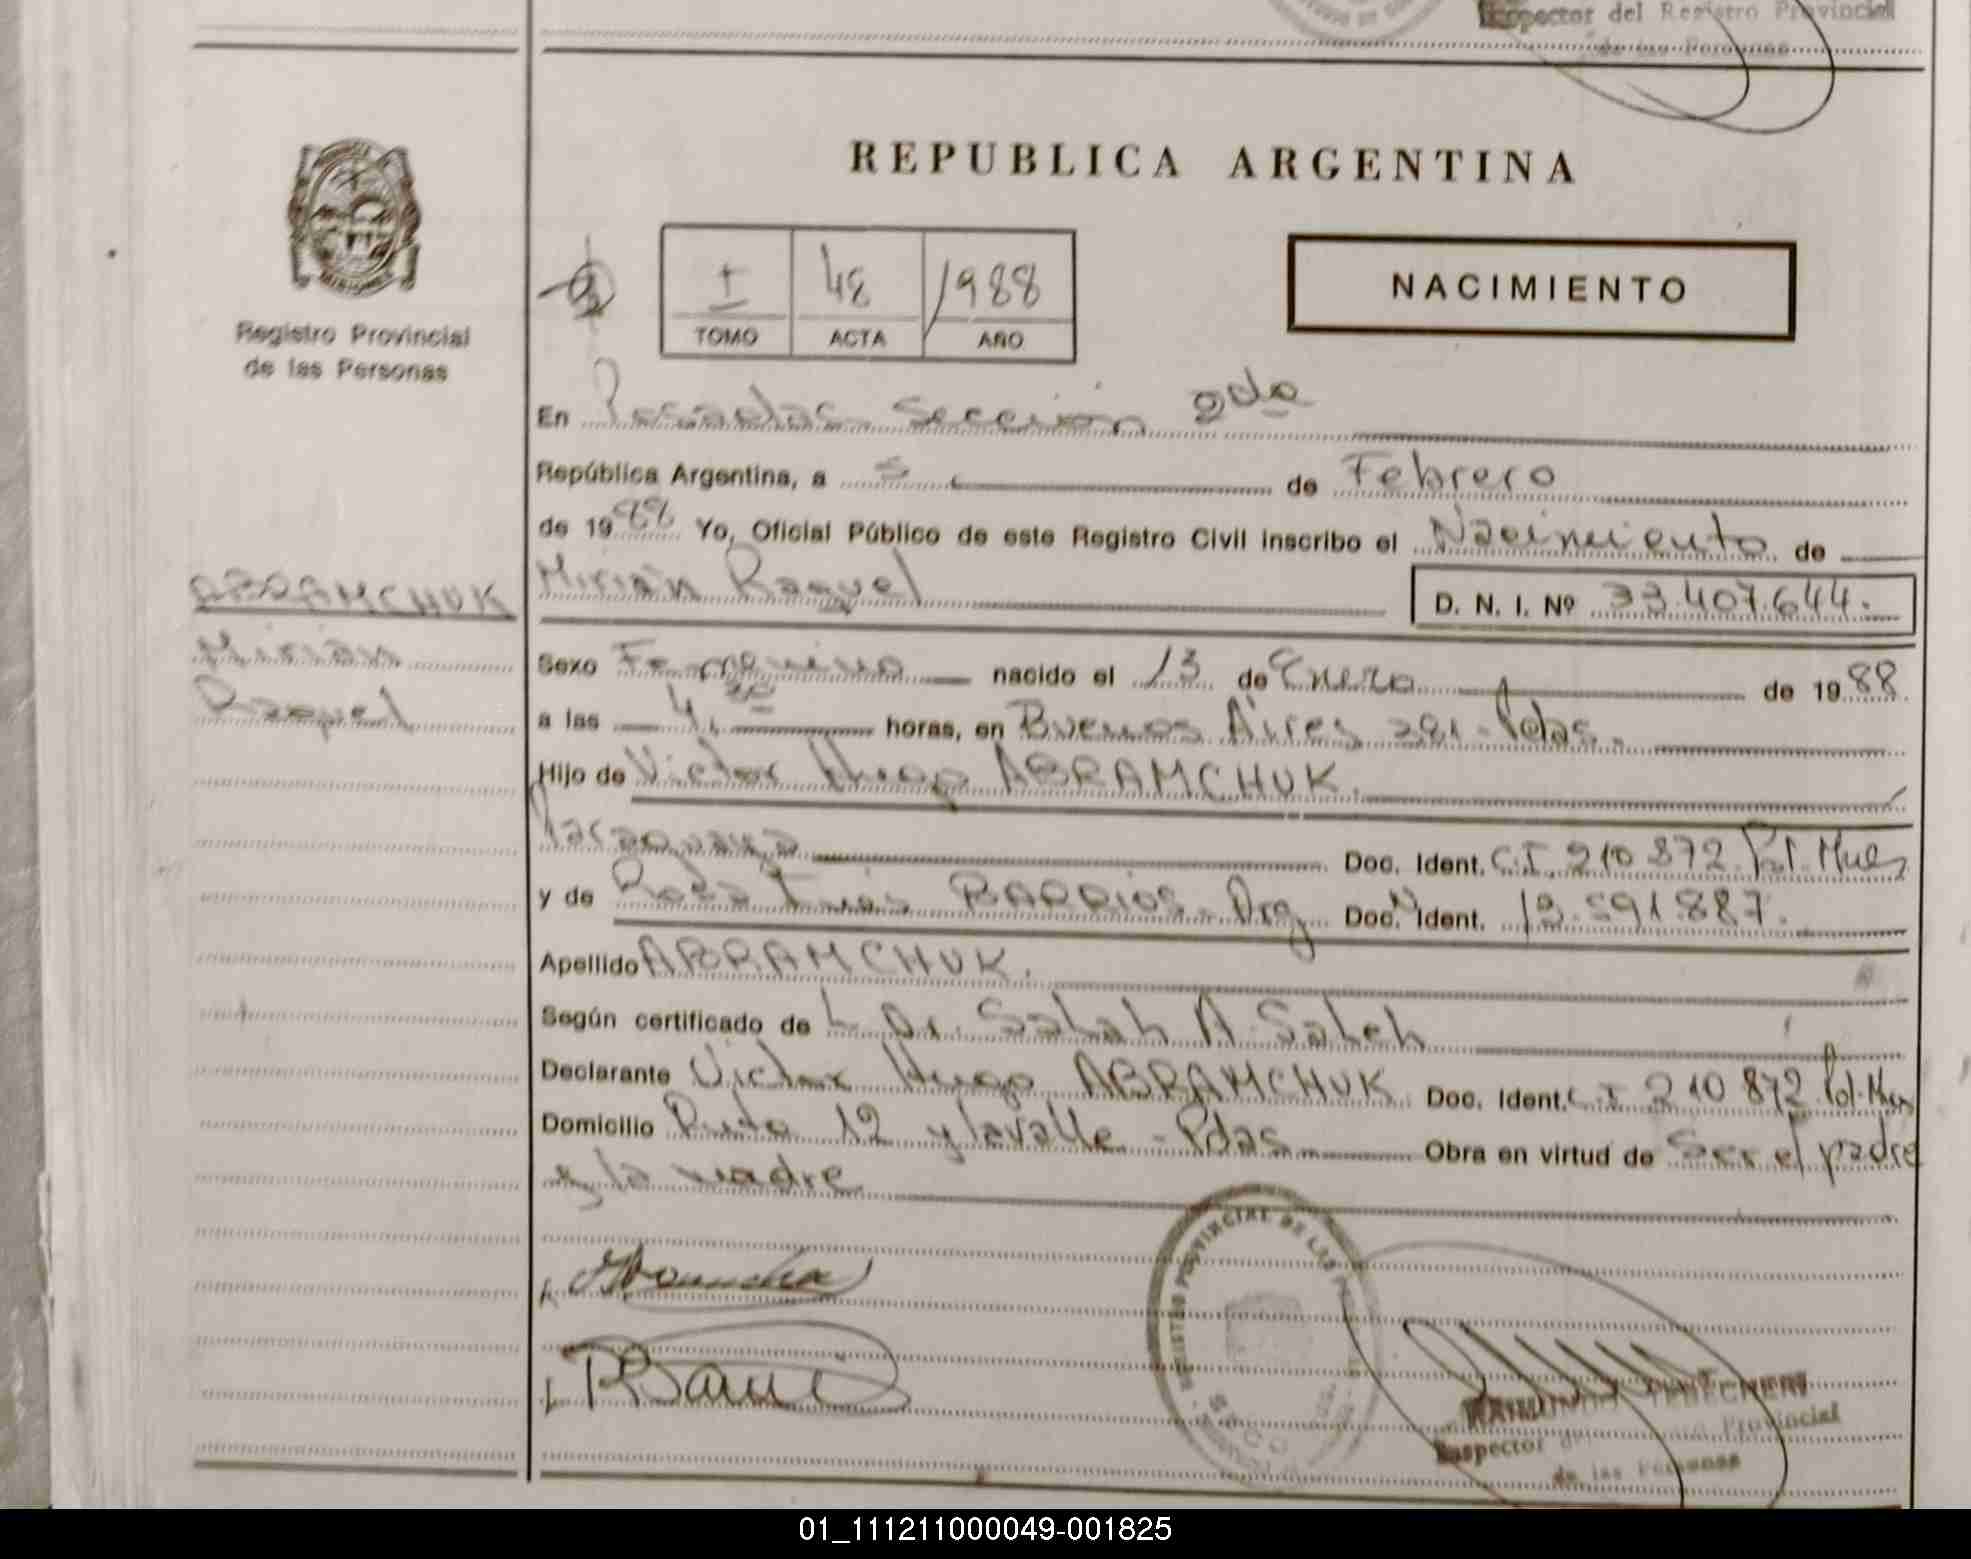 Inspector del Registro Provincial
de las Personas
REPUBLICA ARGENTINA
NACIMIENTO
I 48 1988
TOMO ACTA AÑO
Registro Provincial
de las Personas
En Posadas Sección 2da
República Argentina, a 5 de Febrero
de 1988 Yo, Oficial Público de este Registro Civil inscribo el Nacimiento de
ABRAMCHUK
Mirián Raquel
D. N. I. Nº 33.407.644.
Mirián
Raquel
Sexo Femenino nacido el 13 de Enero de 1988
a las 4, horas, en Buenos Aires 281 - Pdas.
Hijo de Victor Hugo ABRAMCHUK.
Paraguaya Doc. Ident. C.I. 210 872 Pol. Mnes
y de Rosa BARRIOS - Arg Doc. Ident. 13.591.887.
Apellido ABRAMCHUK.
Según certificado de L Dr. Salah A. Saleh
Declarante Victor Hugo ABRAMCHUK Doc. Ident. C.I 210 872 Pol. Mnes
Domicilio Ruta 12 y Lavalle - Pdas Obra en virtud de Ser el padre
y la madre
REGISTRO PROVINCIAL DE LAS
RAIMUNDO
Inspector Provincial
de las Personas
01_111211000049-001825